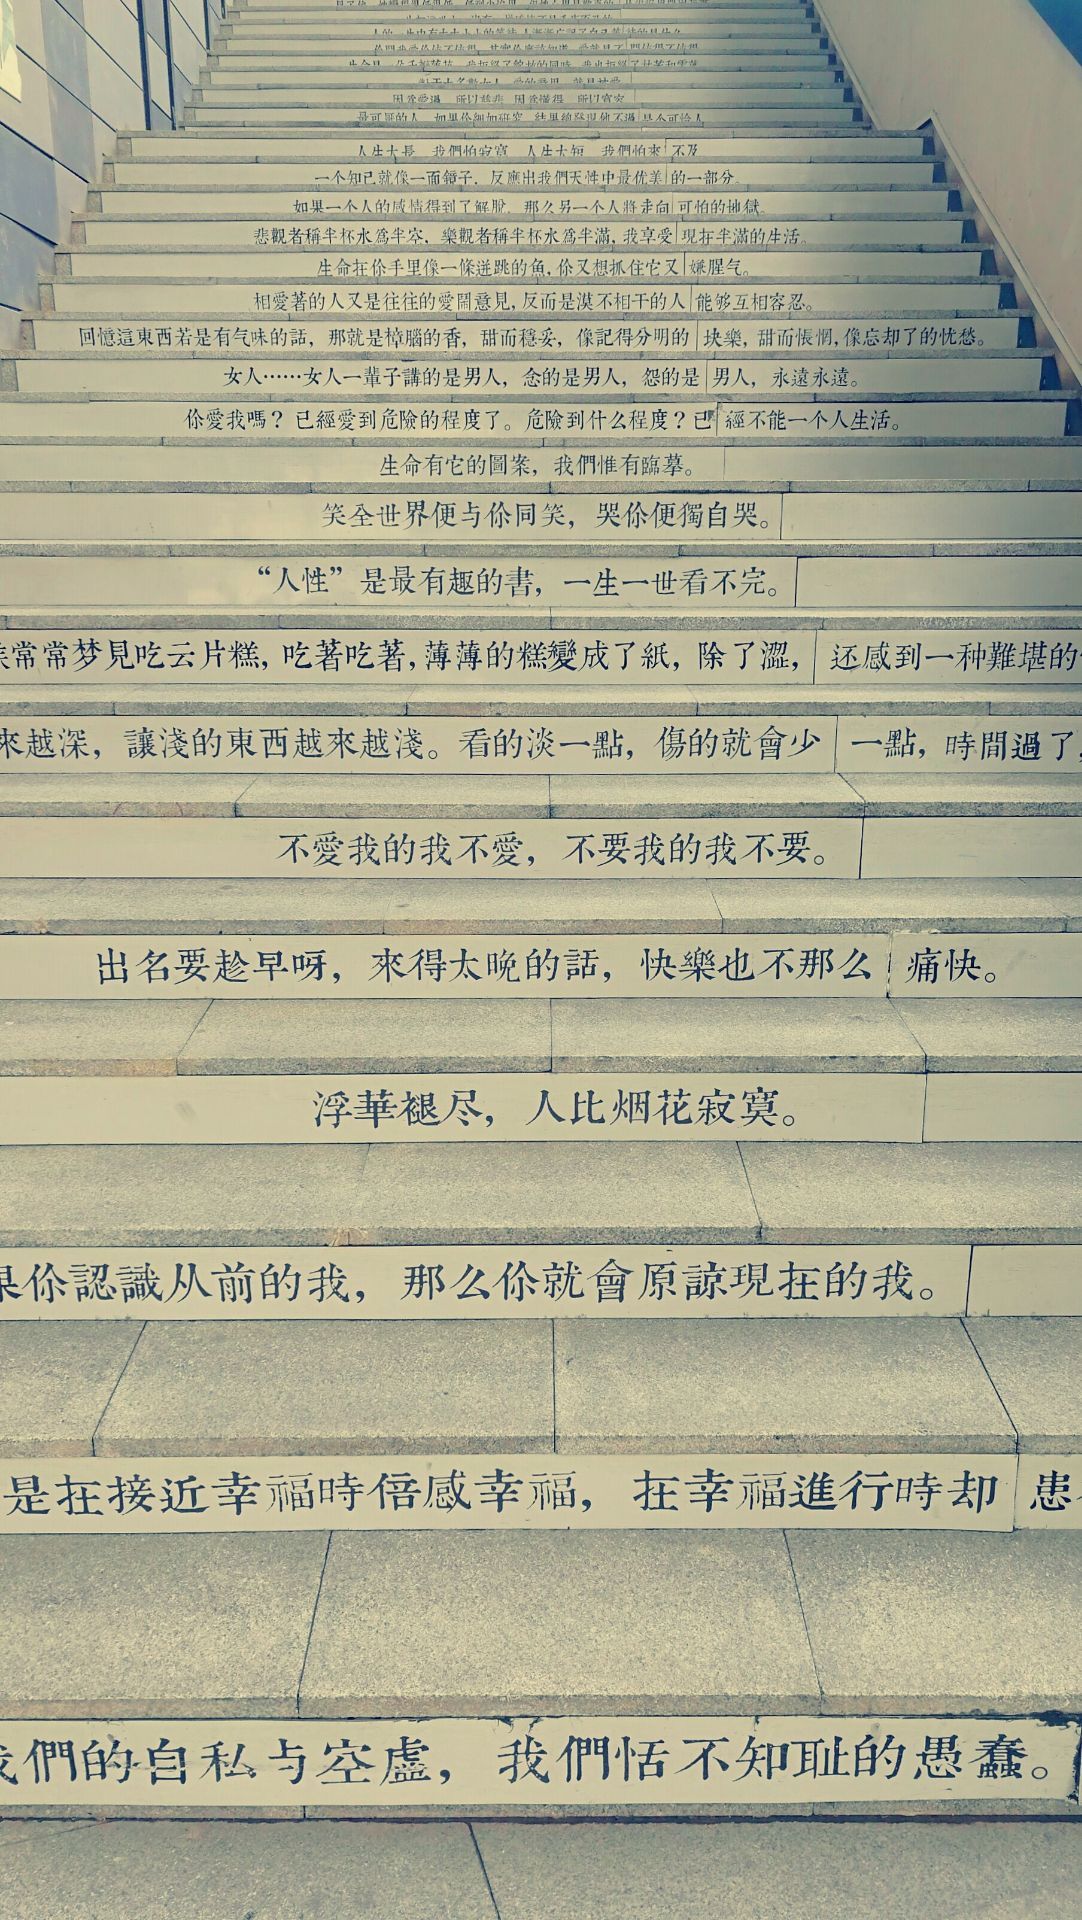 因爲愛過，所以慈悲，因爲懂得，所以寬容
最可厭的人，如果你細加研究，結果總發現他不過是个可怜人
人生太長，我們怕寂寞，人生太短，我們怕來不及
一个知己就像一面鏡子，反應出我們天性中最优美的一部分。
如果一个人的感情得到了解脫，那么另一个人將走向可怕的地獄。
悲觀者稱半杯水爲半空，樂觀者稱半杯水爲半滿，我享受現在半滿的生活。
生命在你手里像一條迸跳的魚，你又想抓住它又嫌腥气。
相愛著的人又是往往的愛鬧意見，反而是漠不相干的人能够互相容忍。
回憶這東西若是有气味的話，那就是樟腦的香，甜而穩妥，像記得分明的快樂，甜而悵惘，像忘却了的忧愁。
女人……女人一輩子講的是男人，念的是男人，怨的是男人，永遠永遠。
你愛我嗎？已經愛到危險的程度了。危險到什么程度？已經不能一个人生活。
生命有它的圖案，我們惟有臨摹。
笑全世界便与你同笑，哭你便獨自哭。
“人性”是最有趣的書，一生一世看不完。
常常梦見吃云片糕，吃著吃著，薄薄的糕變成了紙，除了澀，还感到一种難堪的
來越深，讓淺的東西越來越淺。看的淡一點，傷的就會少一點，時間過了，
不愛我的我不愛，不要我的我不要。
出名要趁早呀，來得太晚的話，快樂也不那么痛快。
浮華褪尽，人比烟花寂寞。
果你認識从前的我，那么你就會原諒現在的我。
是在接近幸福時倍感幸福，在幸福進行時却患
我們的自私与空虛，我們恬不知耻的愚蠢。